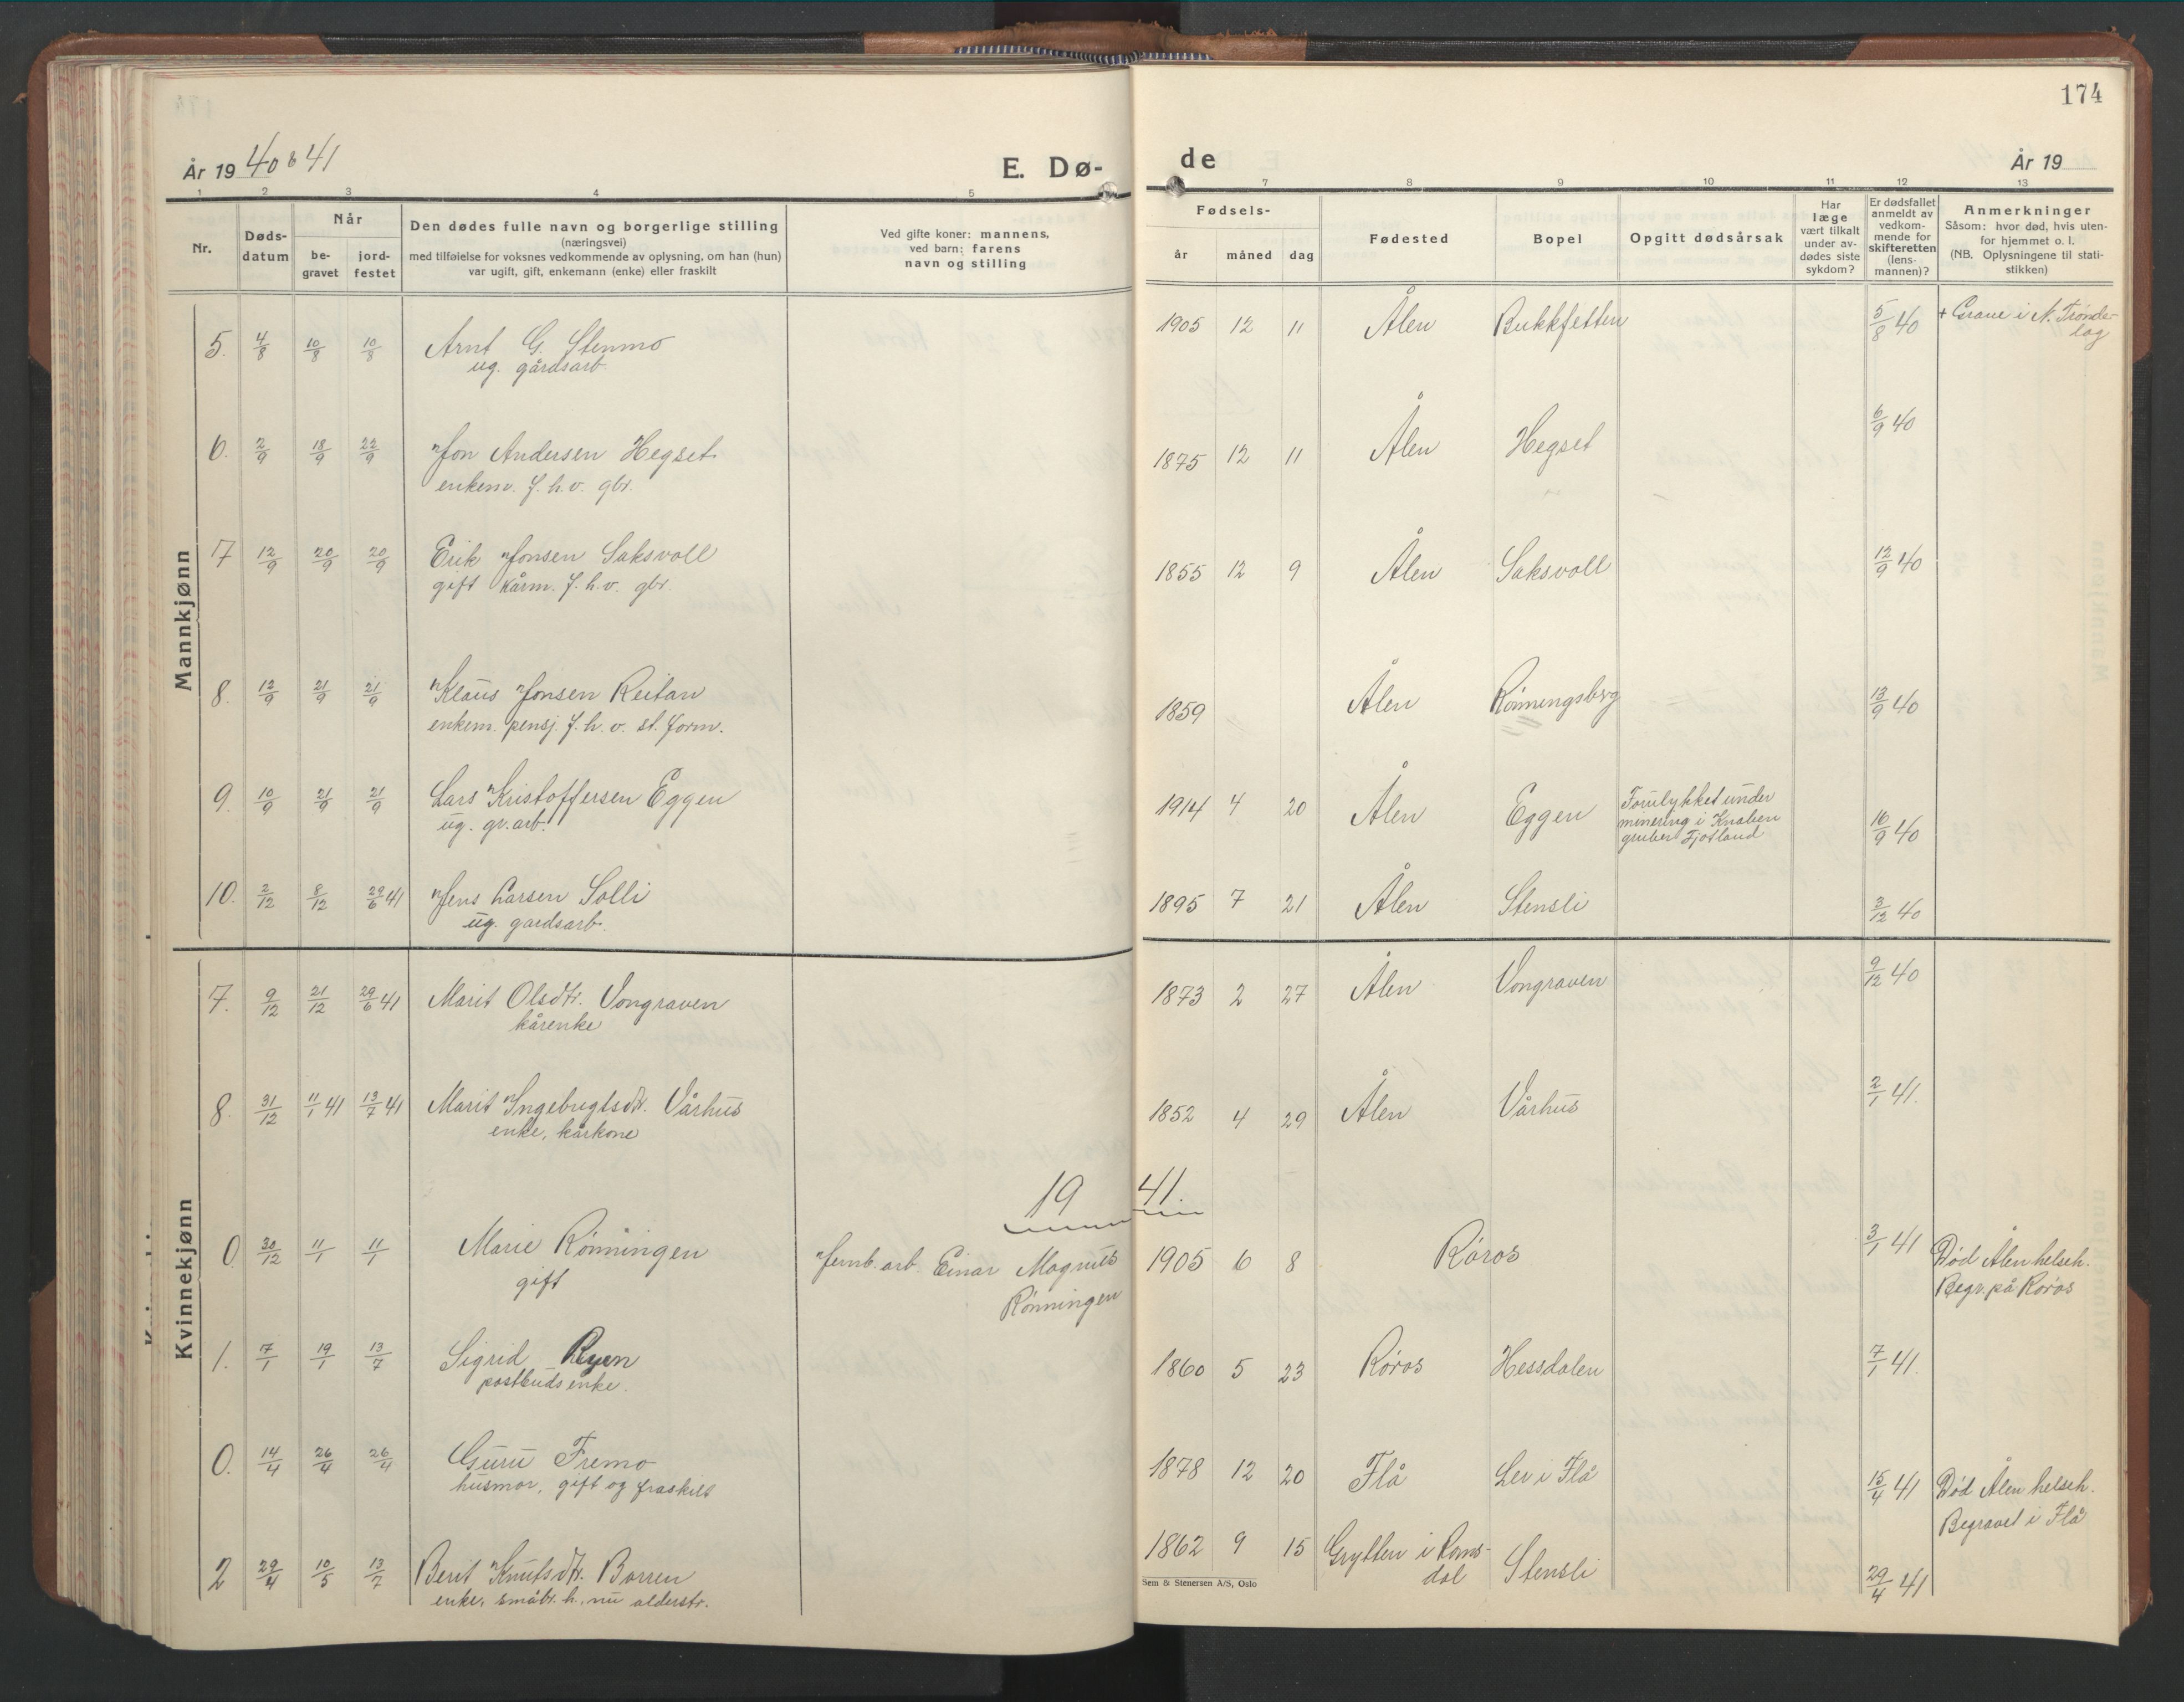 174
År 1940 & 41
E. Dø-
de
År 19
1 2 3 4 5
7 8 9 10 11 12 13
Nr.
Døds-
datum
Når
be-
gravet
jord-
festet
Den dødes fulle navn og borgerlige stilling
(næringsvei)
med tilføielse for voksnes vedkommende av oplysning, om han (hun)
var ugift, gift, enkemann (enke) eller fraskilt
Ved gifte koner: mannens,
ved barn: farens
navn og stilling
Fødsels-
år måned dag
Fødested
Bopel
Opgitt dødsårsak
Har
læge
vært tilkalt
under av-
dødes siste
sykdom?
Er dødsfallet
anmeldt av
vedkom-
mende for
skifteretten
(lens-
mannen)?
Anmerkninger
Såsom: hvor død, hvis uten-
for hjemmet o. l.
(NB. Oplysningene til stati-
stikken)
Mannkjønn
5. 4/8 10/8 10/8 Arnt G. Stenmo 1905 12 11 Ålen Bukkfetten 5/8 40 + Grane i N. Trønde-
lag
ug. gårdsarb.
6. 2/9 18/9 22/9 Jon Andersen Hegset 1875 12 11 Ålen Hegset 6/9 40
enkem. f. h. v. gbr.
7 12/9 20/9 20/9 Erik Jonsen Saksvoll 1855 12 9 Ålen Saksvoll 12/9 40
gift kårm. f. h. v. gbr.
8. 12/9 21/9 21/9 Klaus Jonsen Reitan 1859 Ålen Rönningsberg 13/9 40
enkem. pensj. f. h. v. st. form.
9. 10/9 21/9 21/9 Lars Kristoffersen Eggen 1914 4 20 Ålen Eggen Forulykket under
minering i Knaben
gruber Fjotland 16/9 40
ug. gr. arb.
10. 2/12 8/12 29/6 41 Jens Larsen Solli 1895 7 21 Ålen Stensli 3/12 40
ug. gardsarb.
Kvinnekjønn
7. 9/12 21/12 29/6 41 Marit Olsdtr. Vongraven 1873 2 27 Ålen Vongraven 9/12 40
kårenke
8. 31/12 11/1 41 13/7 41 Marit Ingebrigtsdtr. Vårhus 1852 4 29 Ålen Vårhus 2/1 41.
enke, kårkone
19 41.
0 30/12 11/1 11/1 Marie Rönningen Jernb. arb. Einar Magnus
Rönningen 1905 6 8 Röros 3/1 41 Död Ålen helseh.
Begr. på Röros
gift
1. 7/1 19/1 13/7 Sigrid Ryen 1860 5 23 Röros Hessdalen 7/1 41.
postbuds enke.
0. 14/4 26/4 26/4 Guru Fremo 1878 12 20 Flå Ler i Flå 15/4 41 Död Ålen helseh.
Begravet i Flå
husmor, gift og fraskilt
2 29/4 10/5 13/7 Berit Knutsdtr. Borren 1862 9 15 Grytten i Roms-
dal Stensli 29/4 41
enke, småbr. h., nu alderstr.
Sem & Stenersen A/S, Oslo